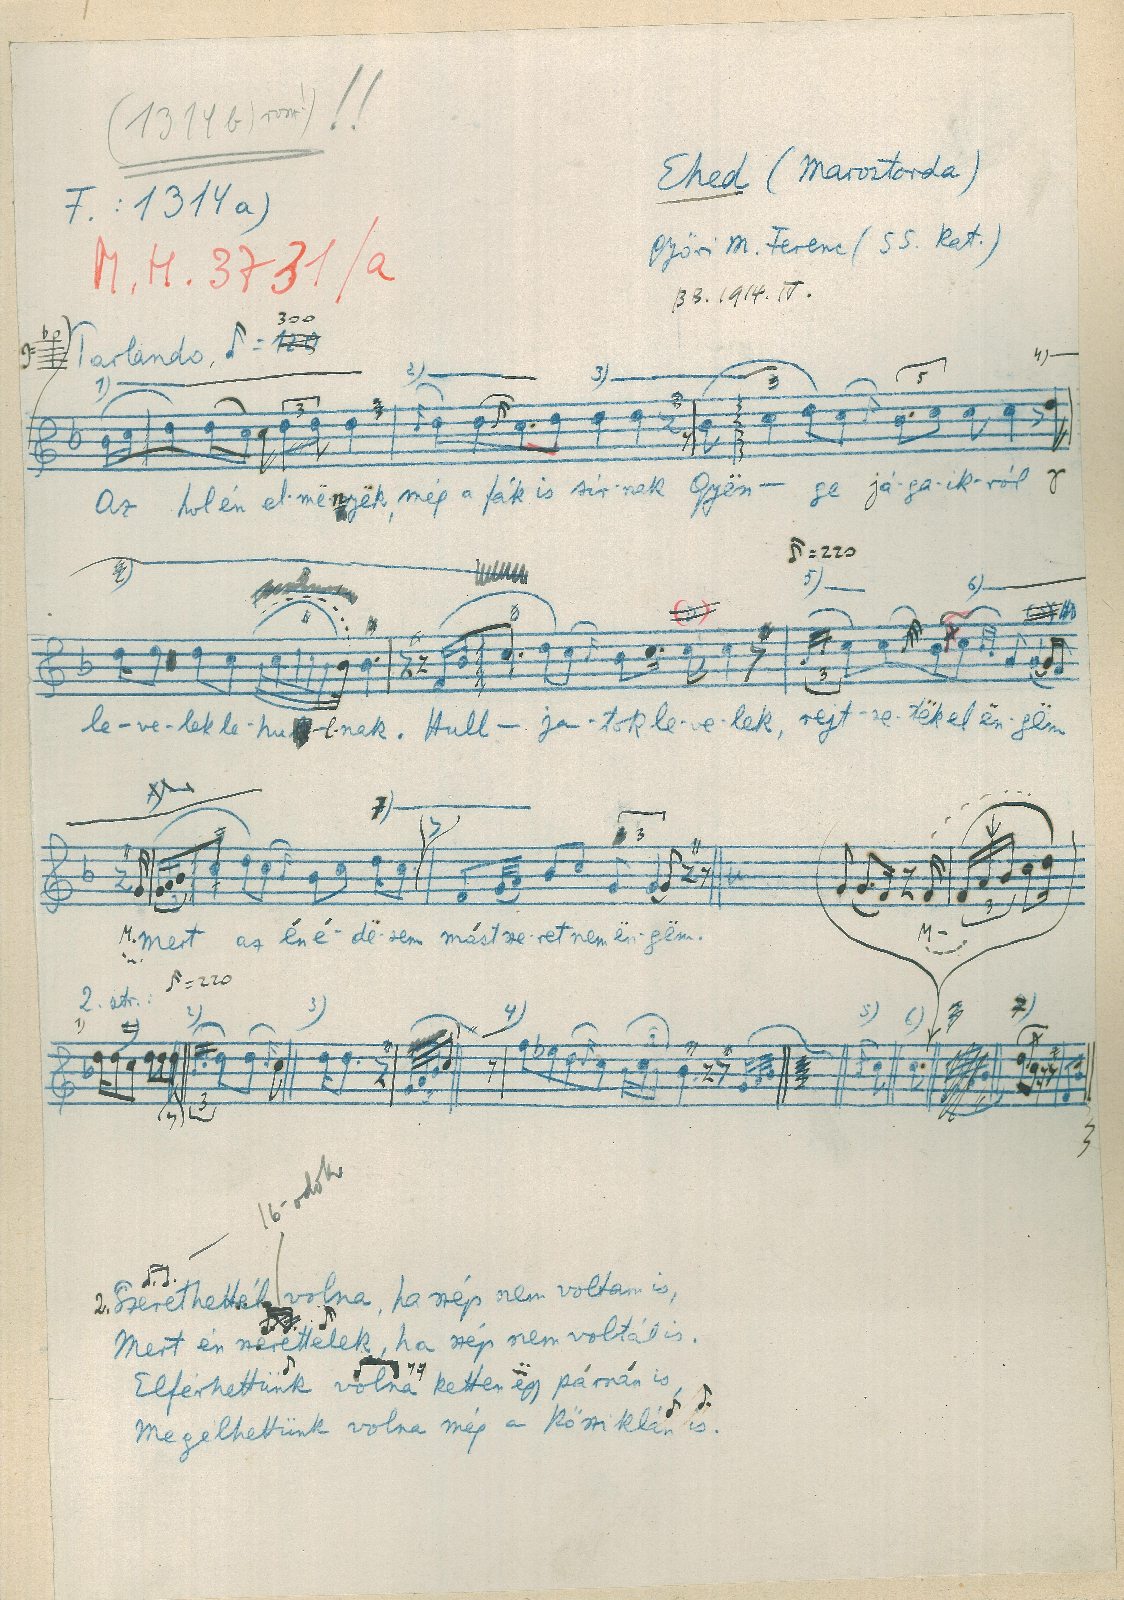 (1314 b) rossz!) !!
F. : 1314 a)
M. H. 3731/a
Ehed (Marostorda)
Győri M. Ferenc (55. Kat.)
BB. 1914. IV.
300
Parlando, ♪ = 120
1) 2) 3) 4)
3 5
Az hol én el-më-nyëk, még a fák is sír-nak Gyën- ge já-ga-ik-ról
♪=220
5) 6)
3
le-ve-lek le-hu-l-nak. Hull- ja-tok le-ve-lek, rejt-se-tëk el ën-gëm
7)
3
3
M-
Mert az én é-dë-sem mást sze-ret nem ën-gëm.
2. str.: ♪=220
1) 2) 3) 4) 5) 6) 7)
3
16-odok
2. Szerethettél volna, ha szép nem voltam is,
Mert én szerettelek, ha szép nem voltál is.
Elférhettünk volna ketten ëgy párnán is,
Megélhettünk volna még a kősziklán is.